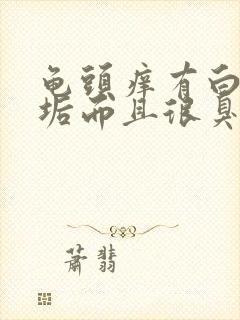 龟头痒有白
垢而且很臭
萧翡